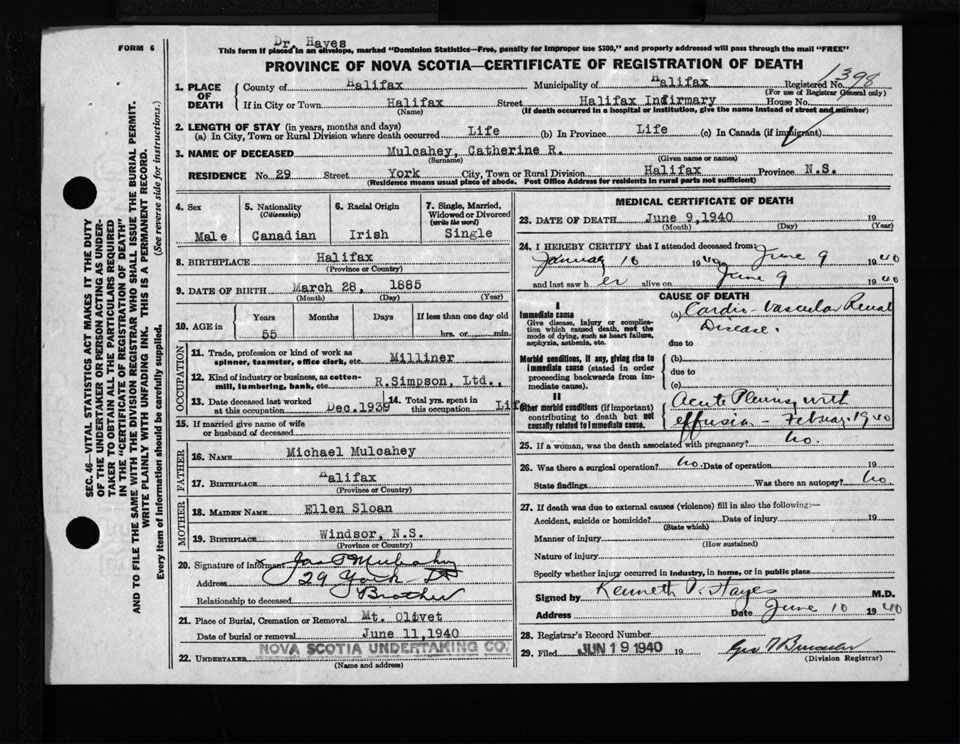 FORM 6
Dr. Hayes
This form if placed in an envelope, marked "Dominion Statistics—Free, penalty for improper use $300," and properly addressed will pass through the mail "FREE"
PROVINCE OF NOVA SCOTIA—CERTIFICATE OF REGISTRATION OF DEATH
SEC. 46—VITAL STATISTICS ACT MAKES IT THE DUTY
OF THE UNDERTAKER OR PERSON ACTING AS UNDER-
TAKER TO OBTAIN ALL THE PARTICULARS REQUIRED
IN THE "CERTIFICATE OF REGISTRATION OF DEATH"
AND TO FILE THE SAME WITH THE DIVISION REGISTRAR WHO SHALL ISSUE THE BURIAL PERMIT.
WRITE PLAINLY WITH UNFADING INK. THIS IS A PERMANENT RECORD.
Every item of information should be carefully supplied. (See reverse side for instructions.)
1. PLACE OF DEATH
County of Halifax Municipality of Halifax Registered No. 1398
(For use of Registrar General only)
If in City or Town Halifax Street Halifax Infirmary House No.
(Name) (If death occurred in a hospital or institution, give the name instead of street and number)
2. LENGTH OF STAY (in years, months and days)
(a) In City, Town or Rural Division where death occurred Life (b) In Province Life (c) In Canada (if immigrant)
3. NAME OF DECEASED Mulcahey, Catherine R.
(Surname) (Given name or names)
RESIDENCE No. 29 Street York City, Town or Rural Division Halifax Province N.S.
(Residence means usual place of abode. Post Office Address for residents in rural parts not sufficient)
4. Sex
Male
5. Nationality
(Citizenship)
Canadian
6. Racial Origin
Irish
7. Single, Married,
Widowed or Divorced
(write the word)
Single
8. BIRTHPLACE Halifax
(Province or Country)
9. DATE OF BIRTH March 28, 1885
(Month) (Day) (Year)
10. AGE in
Years Months Days If less than one day old
55 hrs. or min.
OCCUPATION
11. Trade, profession or kind of work as
spinner, teamster, office clerk, etc. Milliner
12. Kind of industry or business, as cotton-
mill, lumbering, bank, etc. R.Simpson, Ltd.,
13. Date deceased last worked
at this occupation Dec.1939
14. Total yrs. spent in
this occupation Life
15. If married give name of wife
or husband of deceased
FATHER
16. NAME Michael Mulcahey
17. BIRTHPLACE Halifax
(Province or Country)
MOTHER
18. MAIDEN NAME Ellen Sloan
19. BIRTHPLACE Windsor, N.S.
(Province or Country)
20. Signature of informant x Mulcahey
Address 29 York St
Relationship to deceased Brother
21. Place of Burial, Cremation or Removal Mt. Olivet
Date of burial or removal June 11,1940
22. UNDERTAKER NOVA SCOTIA UNDERTAKING CO.
(Name and address)
MEDICAL CERTIFICATE OF DEATH
23. DATE OF DEATH June 9,1940 19
(Month) (Day) (Year)
24. I HEREBY CERTIFY that I attended deceased from
January 16 1940 to June 9 1940
and last saw h er alive on June 9 1940
CAUSE OF DEATH
I
Immediate cause
Give disease, injury or complica-
tion which caused death, not the
mode of dying, such as heart failure,
asphyxia, asthenia, etc.
(a) Cardio-Vascular Renal
Disease.
due to
Morbid conditions, if any, giving rise to
immediate cause (stated in order
proceeding backwards from im-
mediate cause).
(b)
due to
(c)
II
Other morbid conditions (if important)
contributing to death but not
causally related to immediate cause.
Acute Pleurisy with
effusion - Februar 1940
25. If a woman, was the death associated with pregnancy? No.
26. Was there a surgical operation? No. Date of operation 19
State findings Was there an autopsy? No
27. If death was due to external causes (violence) fill in also the following:—
Accident, suicide or homicide? Date of injury 19
(State which)
Manner of injury
(How sustained)
Nature of injury
Specify whether injury occurred in industry, in home, or in public place
Signed by Kenneth P. Hayes M.D.
Address Date June 10 1940
28. Registrar's Record Number
29. Filed JUN 19 1940 19
(Division Registrar)